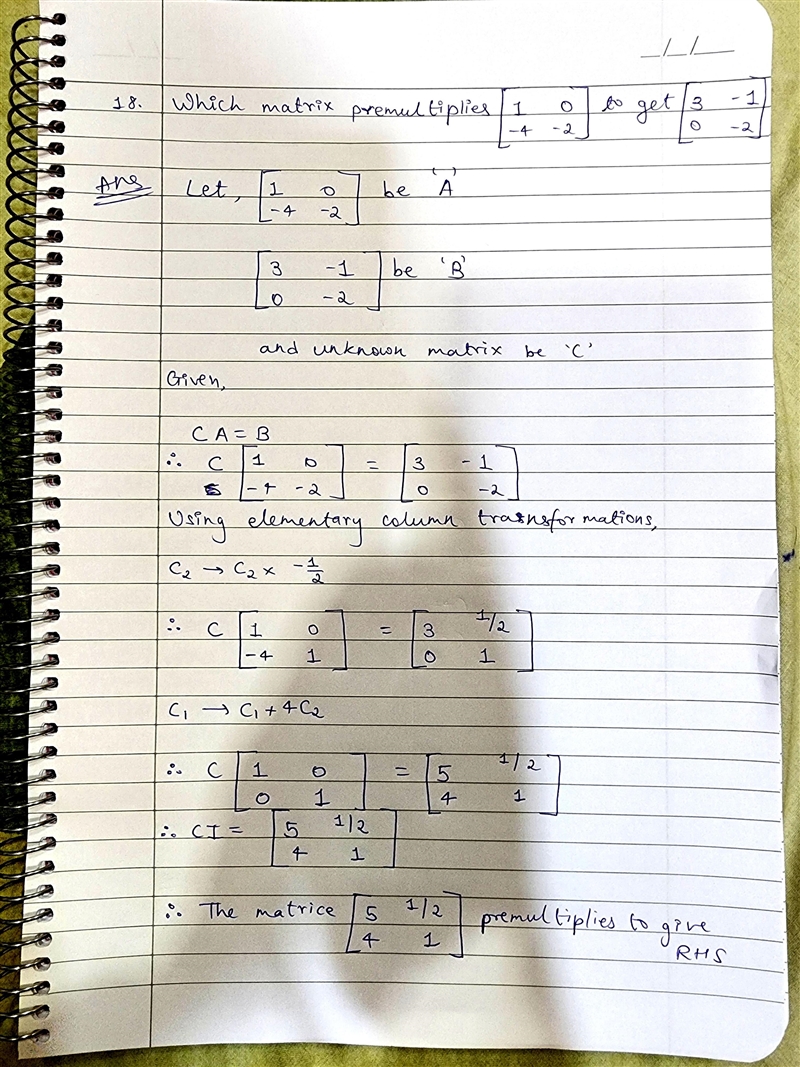 _/_/_
18. Which matrix premultiplies [1 0 to get [3 -1
-4 -2] 0 -2]
Ans Let, [1 0 be 'A'
-4 -2]
[3 -1 be 'B'
0 -2]
and unknown matrix be 'C'
Given,
CA = B
∴ C [1 0 = [3 -1
-4 -2] 0 -2]
Using elementary column transformations,
C₂ → C₂ × -1/2
∴ C [1 0 = [3 1/2
-4 1] 0 1]
C₁ → C₁ + 4C₂
∴ C [1 0 = [5 1/2
0 1] 4 1]
∴ CI = [5 1/2
4 1]
∴ The matrice [5 1/2 premultiplies to give
4 1] RHS